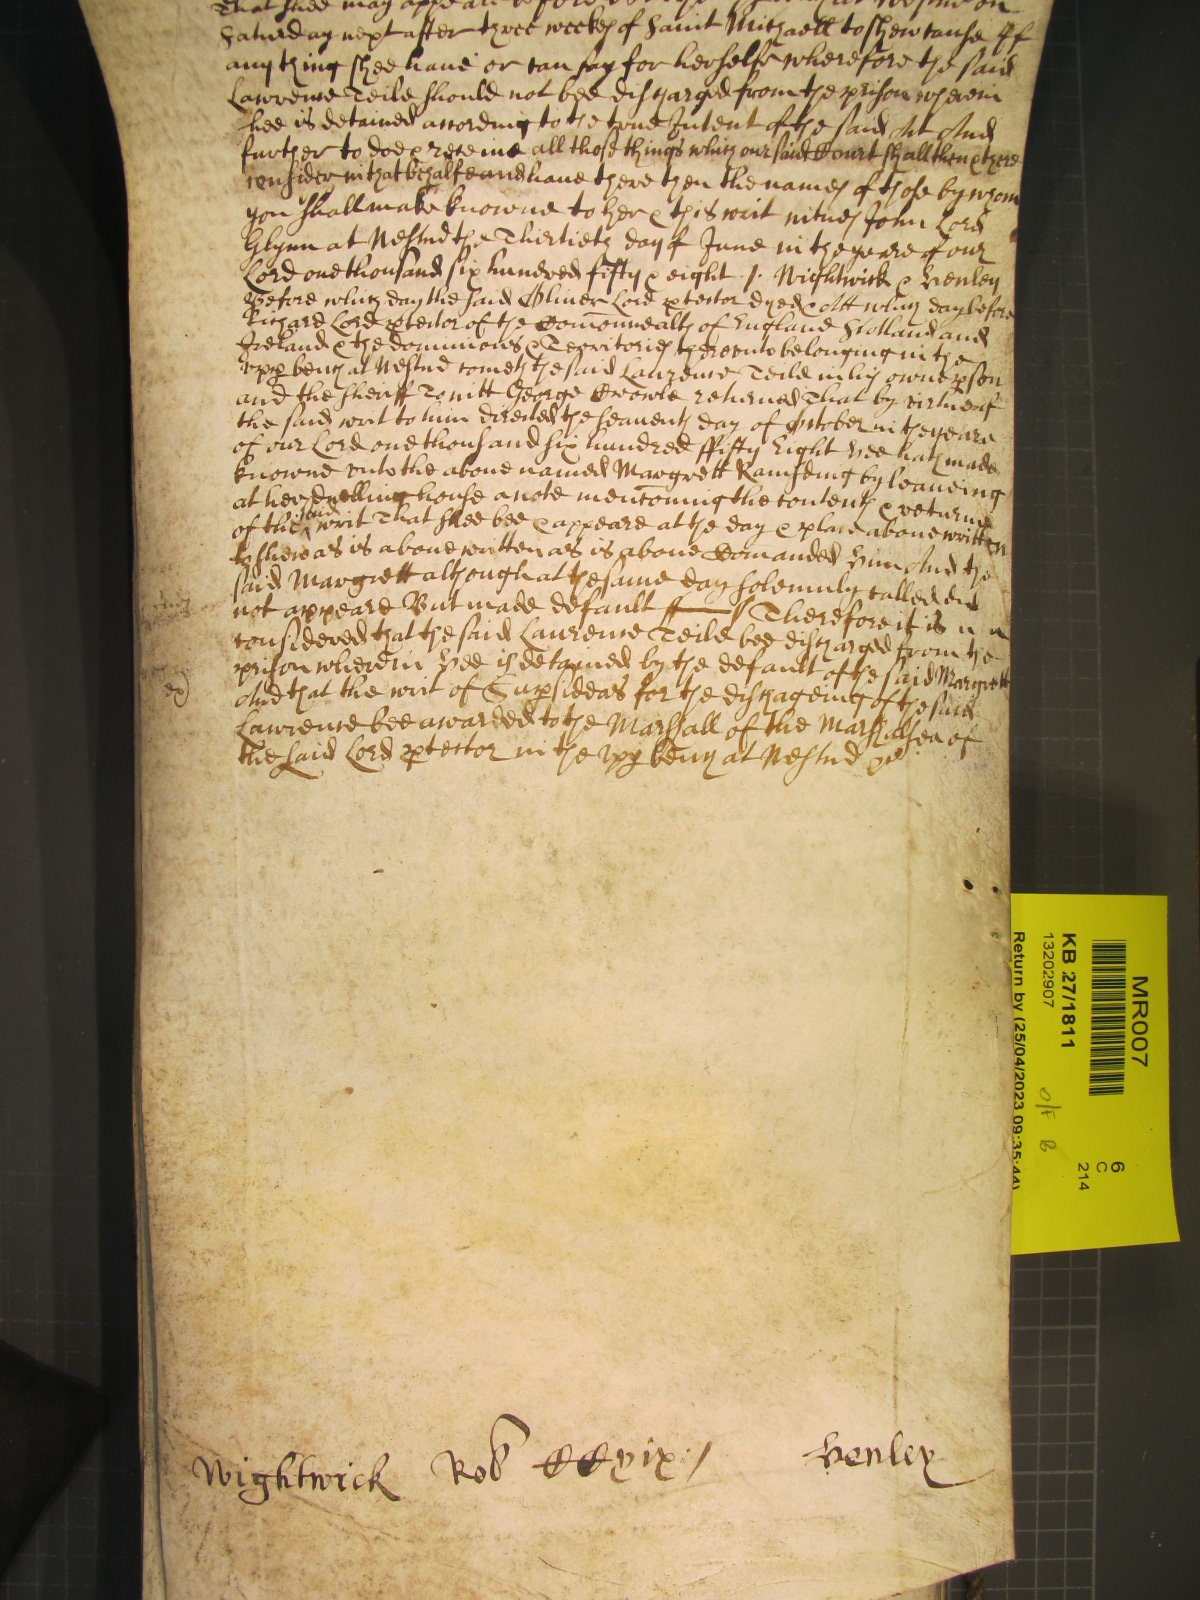 That shee may appeare before
Saturday next after three weekes of Saint Michaell to shew cause if
any thing shee have or can say for herselfe wherefore the said
Lawrence Teile should not bee discharged from the prison wherein
hee is detained according to the true Intent of the said Act And
further to doe & receive all those things which our said Court shall then & there
consider in that behalfe and have there then the names of those by whom
you shall make knowne to her & this writ witnes John Lord
Glynn at Westmr the Thirtieth day of June in the yeare of our
Lord one thousand six hundred fifty & eight . /. Wightwick & Henley
Before which day the said Oliver Lord ptector dyed Att which day before
Richard Lord ptector of the Comonwealth of England Scotland and
Ireland & the dominions & Territories thereunto belonging in the
upp bench at Westmr cometh the said Lawrence Teile in his owne pson
and the sheriff To witt George Crowle returned That by virtue of
the said writ to him directed the seaventh day of October in the yeare
of our Lord one thousand six hundred ffifty Eight hee hath made
knowne unto the above named Margrett Ramsding by leaveing
at her dwelling house a note mencioning the contents & returne
of the said writ That shee bee & appeare at the day & place above written
to shew as is above written as is above Comanded him And the
said Margrett although at the same day solemnly called did
not appeare But made default Therefore it is
considered that the said Lawrence Teile bee discharged from the
prison wherein hee is detained by the default of the said Margrett
And that the writ of Supsiddeas for the dischageing of the said
Lawrence bee awarded to the Marshall of the Marshalsea of
the said Lord ptector in the upp bench at Westmr &c
Wightwick Rob CCxix / Henley
MR007
KB 27/1811
13202907
Return by (25/04/2023 09:35:44)
6
C
214